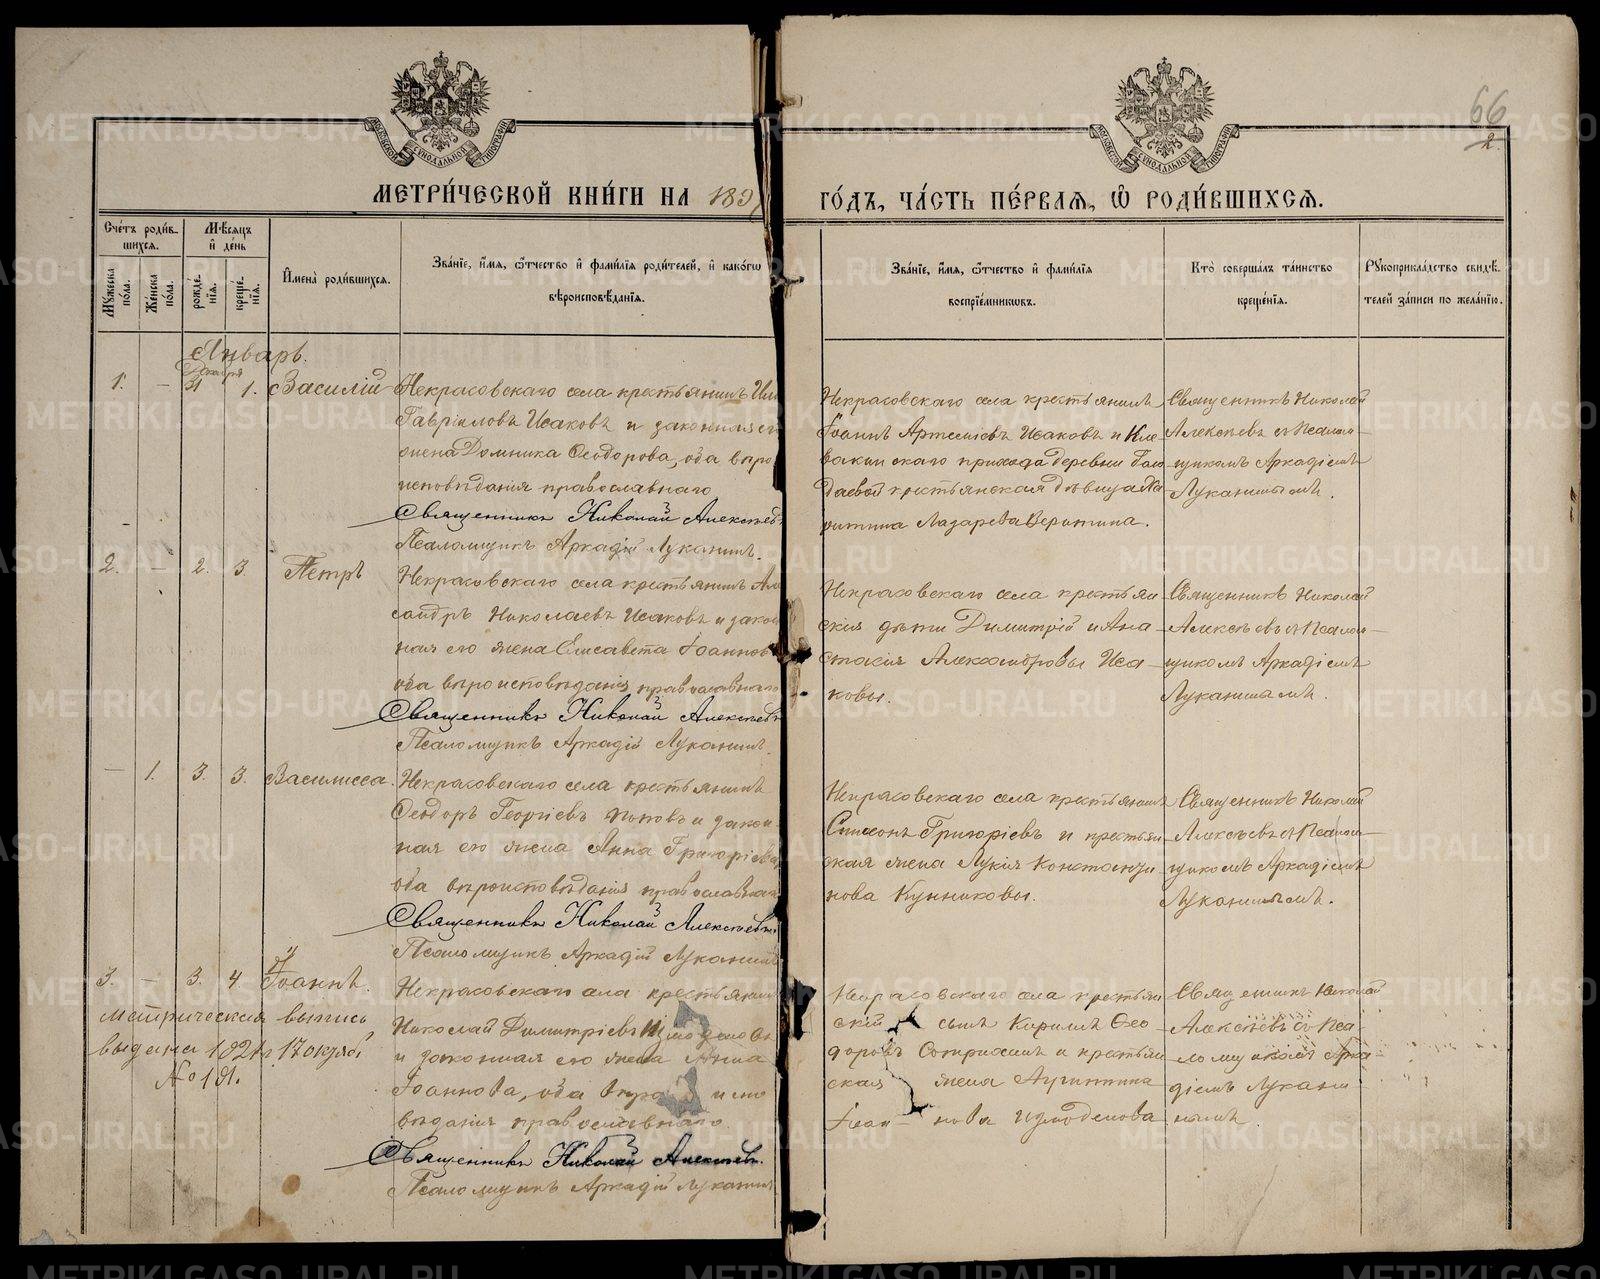 66
2.
МОСКОВСКОЙ СѴНОДАЛЬНОЙ ТИПОГРАФИИ
МОСКОВСКОЙ СѴНОДАЛЬНОЙ ТИПОГРАФИИ
МЕТРИ́ЧЕСКОЙ КНИ́ГИ НА 189
ГО́ДЪ, ЧА́СТЬ ПЕ́РВАѦ, Ѡ҆ РОДИ́ВШИХСѦ.
Сче́тъ роди́в-
шихсѧ.
Мꙋжеска по́ла.
Же́нска по́ла.
Мѣ́сѧцъ
и҆ де́нь
рожде́-
нїѧ.
креще́-
нїѧ.
И҆мена̀ роди́вшихсѧ.
Зва́нїе, и҆́мѧ, ѻ҆́тчество и҆ фами́лїѧ роди́телей, и҆ како́гѡ
вѣроисповѣ́данїѧ.
Зва́нїе, и҆́мѧ, ѻ҆́тчество и҆ фами́лїѧ
воспрїе́мникѡвъ.
Кто̀ соверша́лъ та́инство
креще́нїѧ.
Рꙋкоприкла́дство свидѣ́-
телей за́писи по жела́нїю.
Январь.
Декабря
1. — 31 1. Василій
Некрасовскаго села крестьянинъ
Гавріиловъ Исаковъ и законная его
жена Домника Ѳеодорова, оба вѣро
исповѣданія православнаго
Священникъ Николай Алексѣевъ
Псаломщикъ Аркадій Луканинъ.
Некрасовскаго села крестьянинъ
Іоаннъ Артеміевъ Исаковъ и Кле-
вакинскаго прихода деревни
крестьянская дѣвица Ха-
ритина Лазарева Веритина.
Священникъ Николай
Алексѣевъ съ Псалом-
щикомъ Аркадіемъ
Луканинымъ.
2. — 2. 3. Петръ
Некрасовскаго села крестьянинъ Але
сандръ Николаевъ Исаковъ и закон
ная его жена Елисавета Іоаннова
оба вѣроисповѣданія православнаго
Священникъ Николай Алексѣевъ
Псаломщикъ Аркадій Луканинъ.
Некрасовскаго села крестьян-
скія дѣти Димитрій и Ана-
стасія Александровы Иса-
ковы.
Священникъ Николай
Алексѣевъ съ Псалом-
щикомъ Аркадіемъ
Луканинымъ.
— 1. 3. 3. Василисса.
Некрасовскаго села крестьянинъ
Ѳеодоръ Георгіевъ Поповъ и закон-
ная его жена Анна Григоріева
оба вѣроисповѣданія православнаго
Священникъ Николай Алексѣевъ
Псаломщикъ Аркадій Луканинъ
Некрасовскаго села крестьянинъ
Симеонъ Григоріевъ и крестьян
ская жена Лукія Константи-
нова Кунниковы.
Священникъ Николай
Алексѣевъ съ Псалом-
щикомъ Аркадіемъ
Луканинымъ.
3. — 3. 4. Іоаннъ.
Метрическая выпись
выдана 1921 г. 17 октяб
№ 191.
Некрасовскаго села крестьянинъ
Николай Димитріевъ
и законная его жена Анна
Іоаннова, оба вѣро испо
вѣданія православнаго
Священникъ Николай Алексѣевъ.
Псаломщикъ Аркадій Луканинъ
Некрасовскаго села крестьян
скій сынъ Кириллъ Ѳео
доровъ и крестьян
ская жена Агрипина
Іоан- нова Измоденова
Священникъ Николай
Алексѣевъ съ Пса-
ломщикомъ Арка-
діемъ Лукани
нымъ.